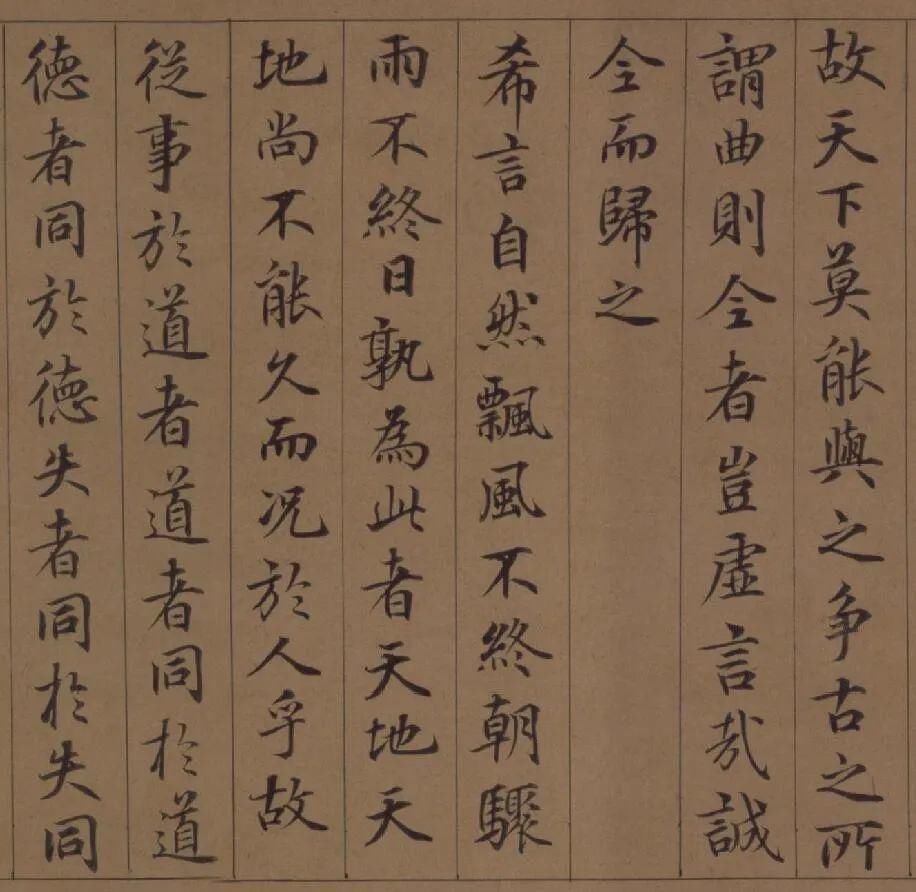 故天下莫能與之争古之所
謂曲則全者豈虛言哉誠
全而歸之
希言自然飄風不終朝驟
雨不終日孰為此者天地天
地尚不能久而况於人乎故
從事於道者道者同於道
德者同於德失者同於失同